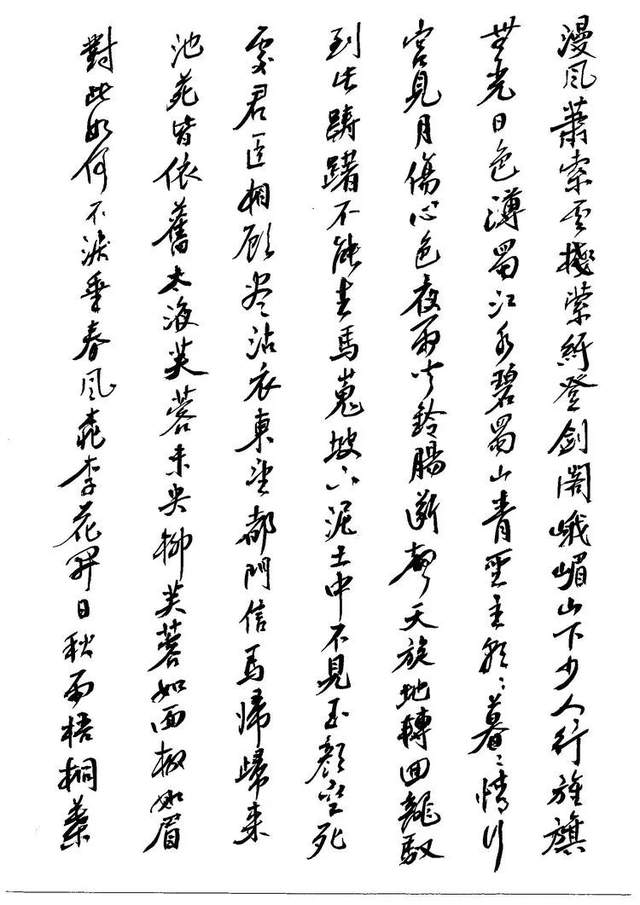 漫風蕭索雲棧縈紆登劍閣峨嵋山下少人行旌旗
無光日色薄蜀江水碧蜀山青聖主朝々暮々情行
宮見月傷心色夜雨聞鈴腸斷聲天旋地轉回龍馭
到此躊躇不能去馬嵬坡下泥土中不見玉顏空死
處君臣相顧尽沾衣東望都門信馬歸歸來
池苑皆依舊太液芙蓉未央柳芙蓉如面柳如眉
對此如何不淚垂春風桃李花開日秋雨梧桐葉